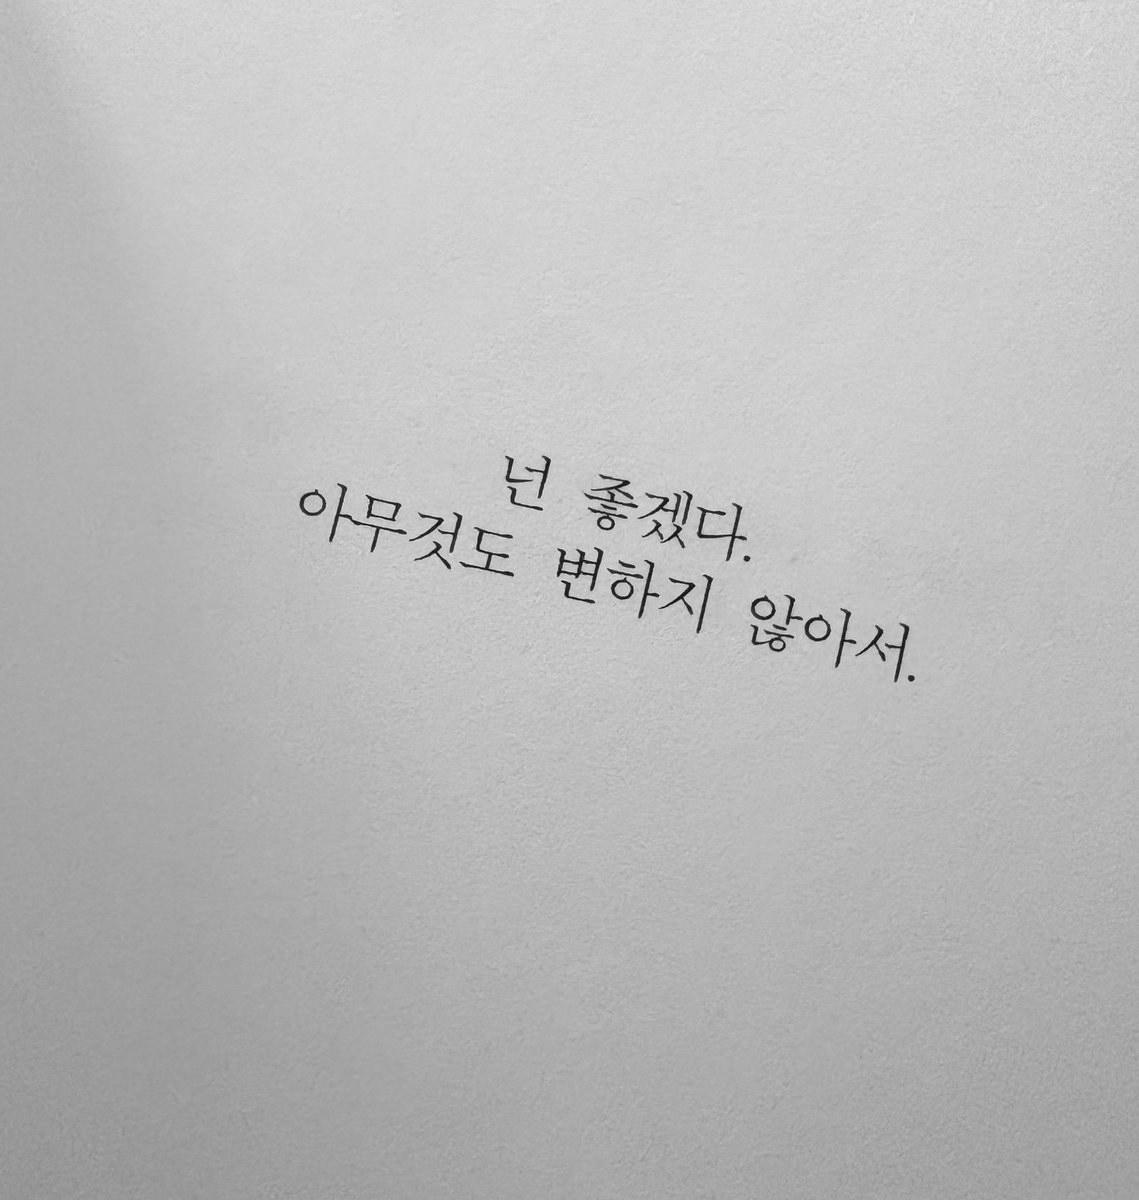 넌 좋겠다.
아무것도 변하지 않아서.